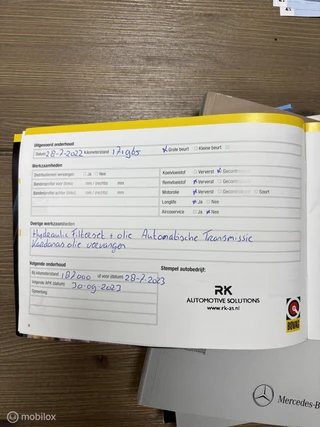 Uitgevoerd onderhoud
Datum 28-7-2022 Kilometerstand Grote beurt Kleine beurt
Werkzaamheden
Distributieriem vervangen Ja Nee
Koelvloeistof Ververst Gecontroleerd
Remvloeistof Ververst Gecontroleerd
Motorolie Ververst Gecontroleerd Soort
Longlife Ja Nee
Aircoservice Ja Nee
Overige werkzaamheden
Hydraulic Filterset + olie Automatische Transmissie
Kardanas olie vervangen
Volgende onderhoud
Bij kilometerstand 187000 of voor datum 28-7-2023
Volgende APK (datum) 30-09-2023
Opmerking
Stempel autobedrijf:
RK
AUTOMOTIVE SOLUTIONS
www.rk-as.nl
BOVAG
Mercedes-B
© mobilox